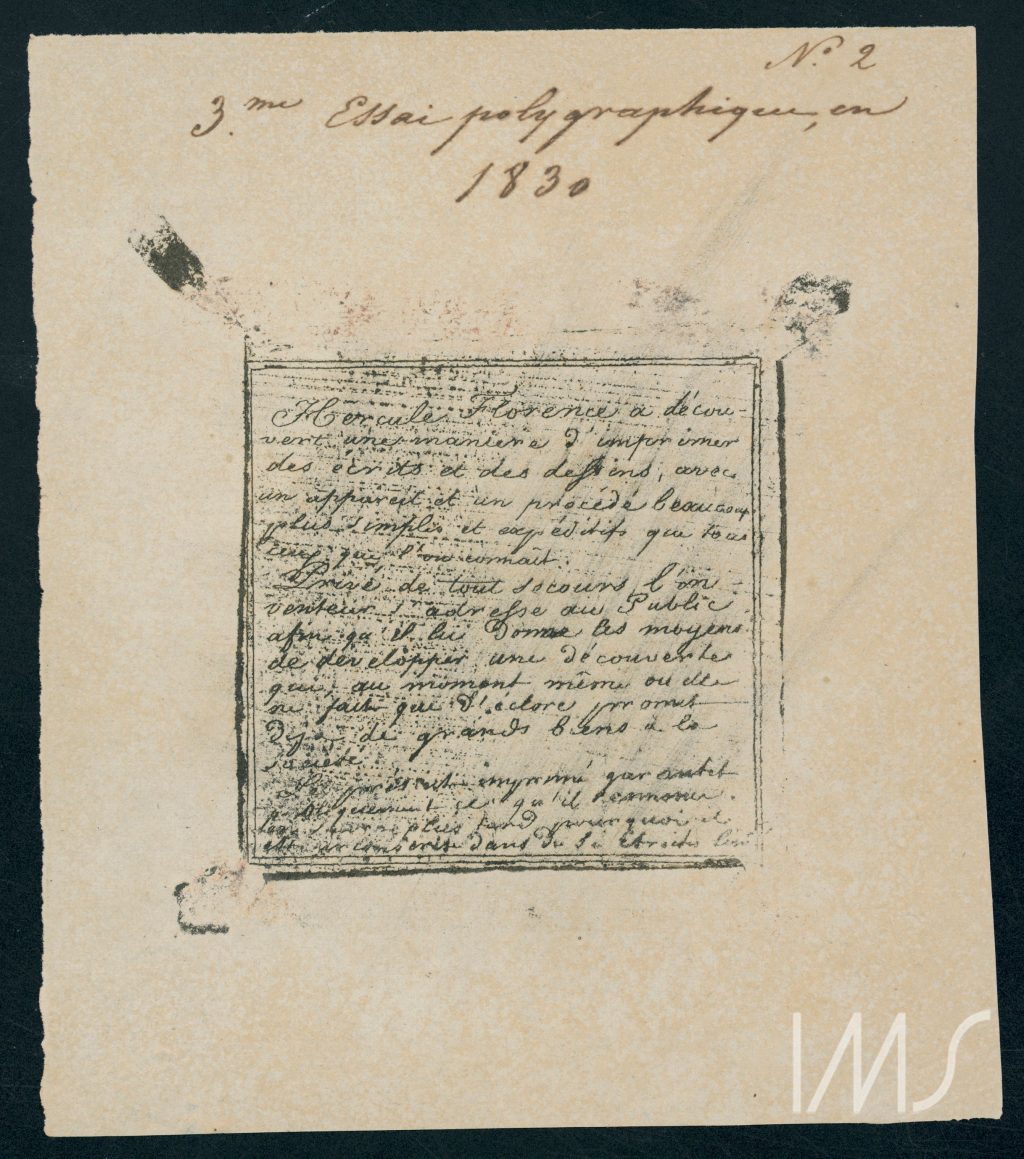 N.º 2
3.me Essai polygraphique, en
1830
Hercule Florence a décou-
vert une maniere d'imprimer
des écrits et des dessins, avec
un appareil et un procédé beaucoup
plus simples et expéditifs que tous
ceux que l'on connait.
Privé de tout secours l'in-
venteur s'adresse au Public
afin qu'il lui donne les moyens
de développer une découverte
qui, au moment même ou elle
ne fait que d'éclore promet
déja de grands biens à la
société.
Le présent imprimé garantit
ce qu'il annonce.
plus tard pourquoi il
est circonscrit dans de si étroites
IMS